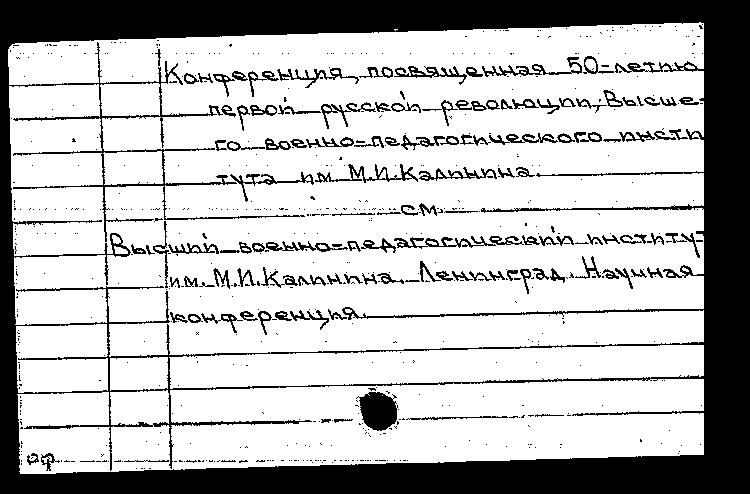 Конференция, посвященная 50-летию
первой русской революции, Высше-
го военно-педагогического инсти
тута им. М.И.Калинина.
см.
Высший военно-педагогический институт
им. М.И.Калинина. Ленинград. Научная
конференция.
рф